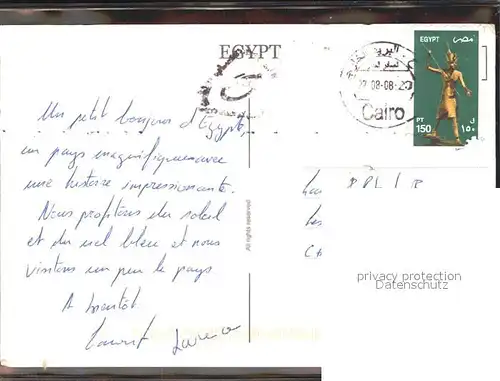 EGYPT
EGYPT مصر
البريد
27-08-08-20
Cairo
PT 150 ١٥٠
Un petit bonjour d'Egypte,
un pays magnifique avec
une histoire impressionante.
Nous profitons du soleil
et du ciel bleu et nous
visitons un peu le pays
A bientôt
Laurent
All rights reserved
privacy protection
Datenschutz